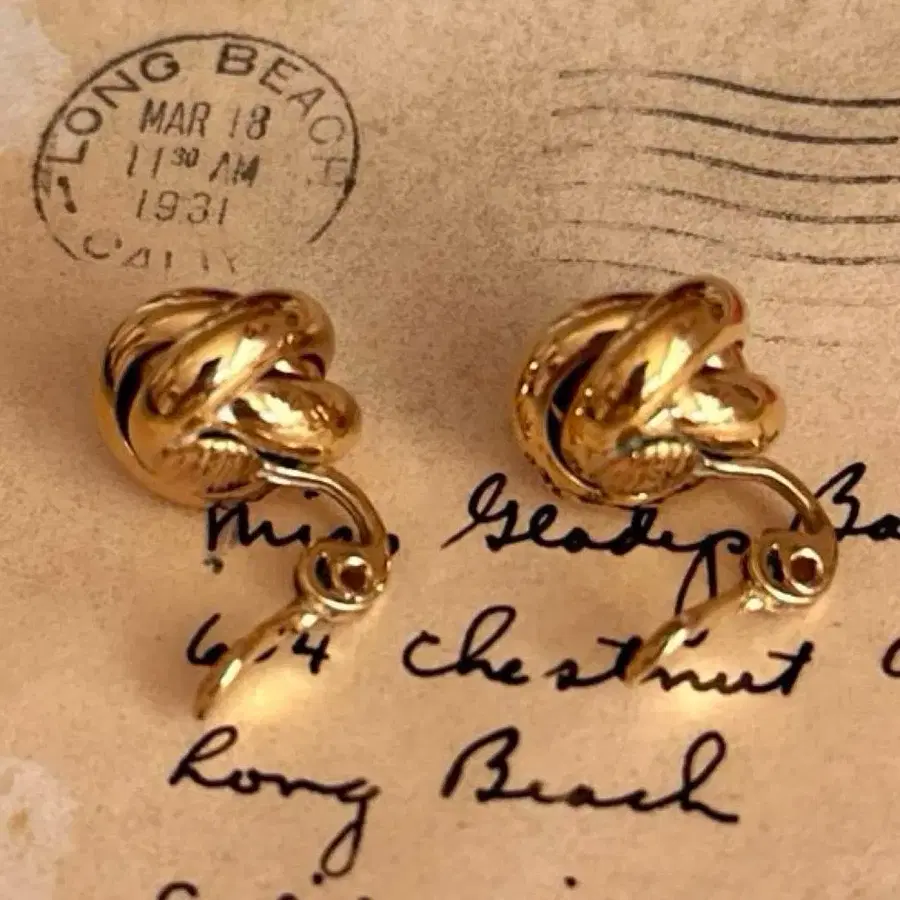 LONG BEACH
MAR 18
11 30 AM
1931
CALIF
Miss Gladys
Chestnut
Long Beach